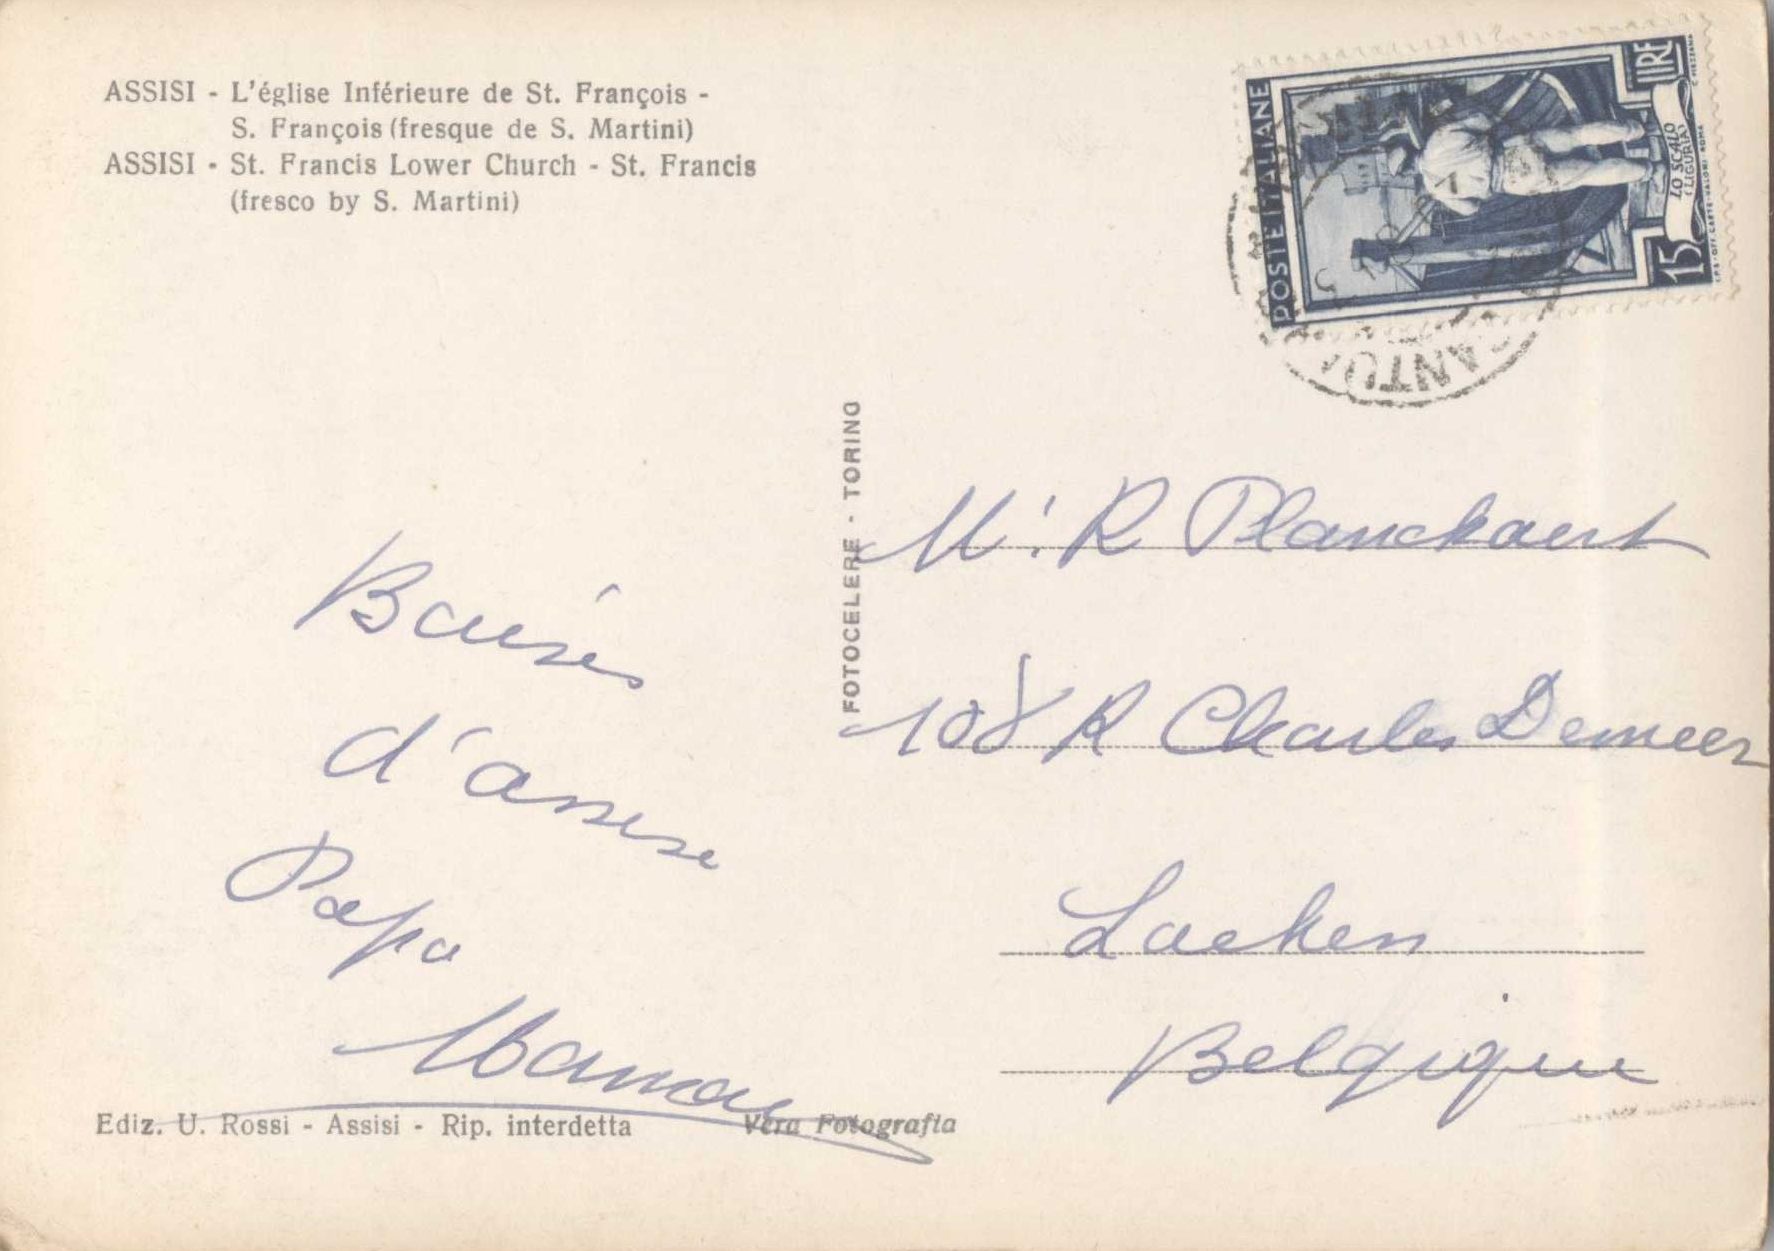 ASSISI - L'église Inférieure de St. François -
S. François (fresque de S. Martini)
ASSISI - St. Francis Lower Church - St. Francis
(fresco by S. Martini)
POSTE ITALIANE
LIRE
15
LO SCALO
(LIGURIA)
FOTOCELERE - TORINO
Baisés
d'assise
Papa
Maman
Mr. R Planckaert
108 R Charles Demeer
Laeken
Belgique
Ediz. U. Rossi - Assisi - Rip. interdetta
Vera Fotografia